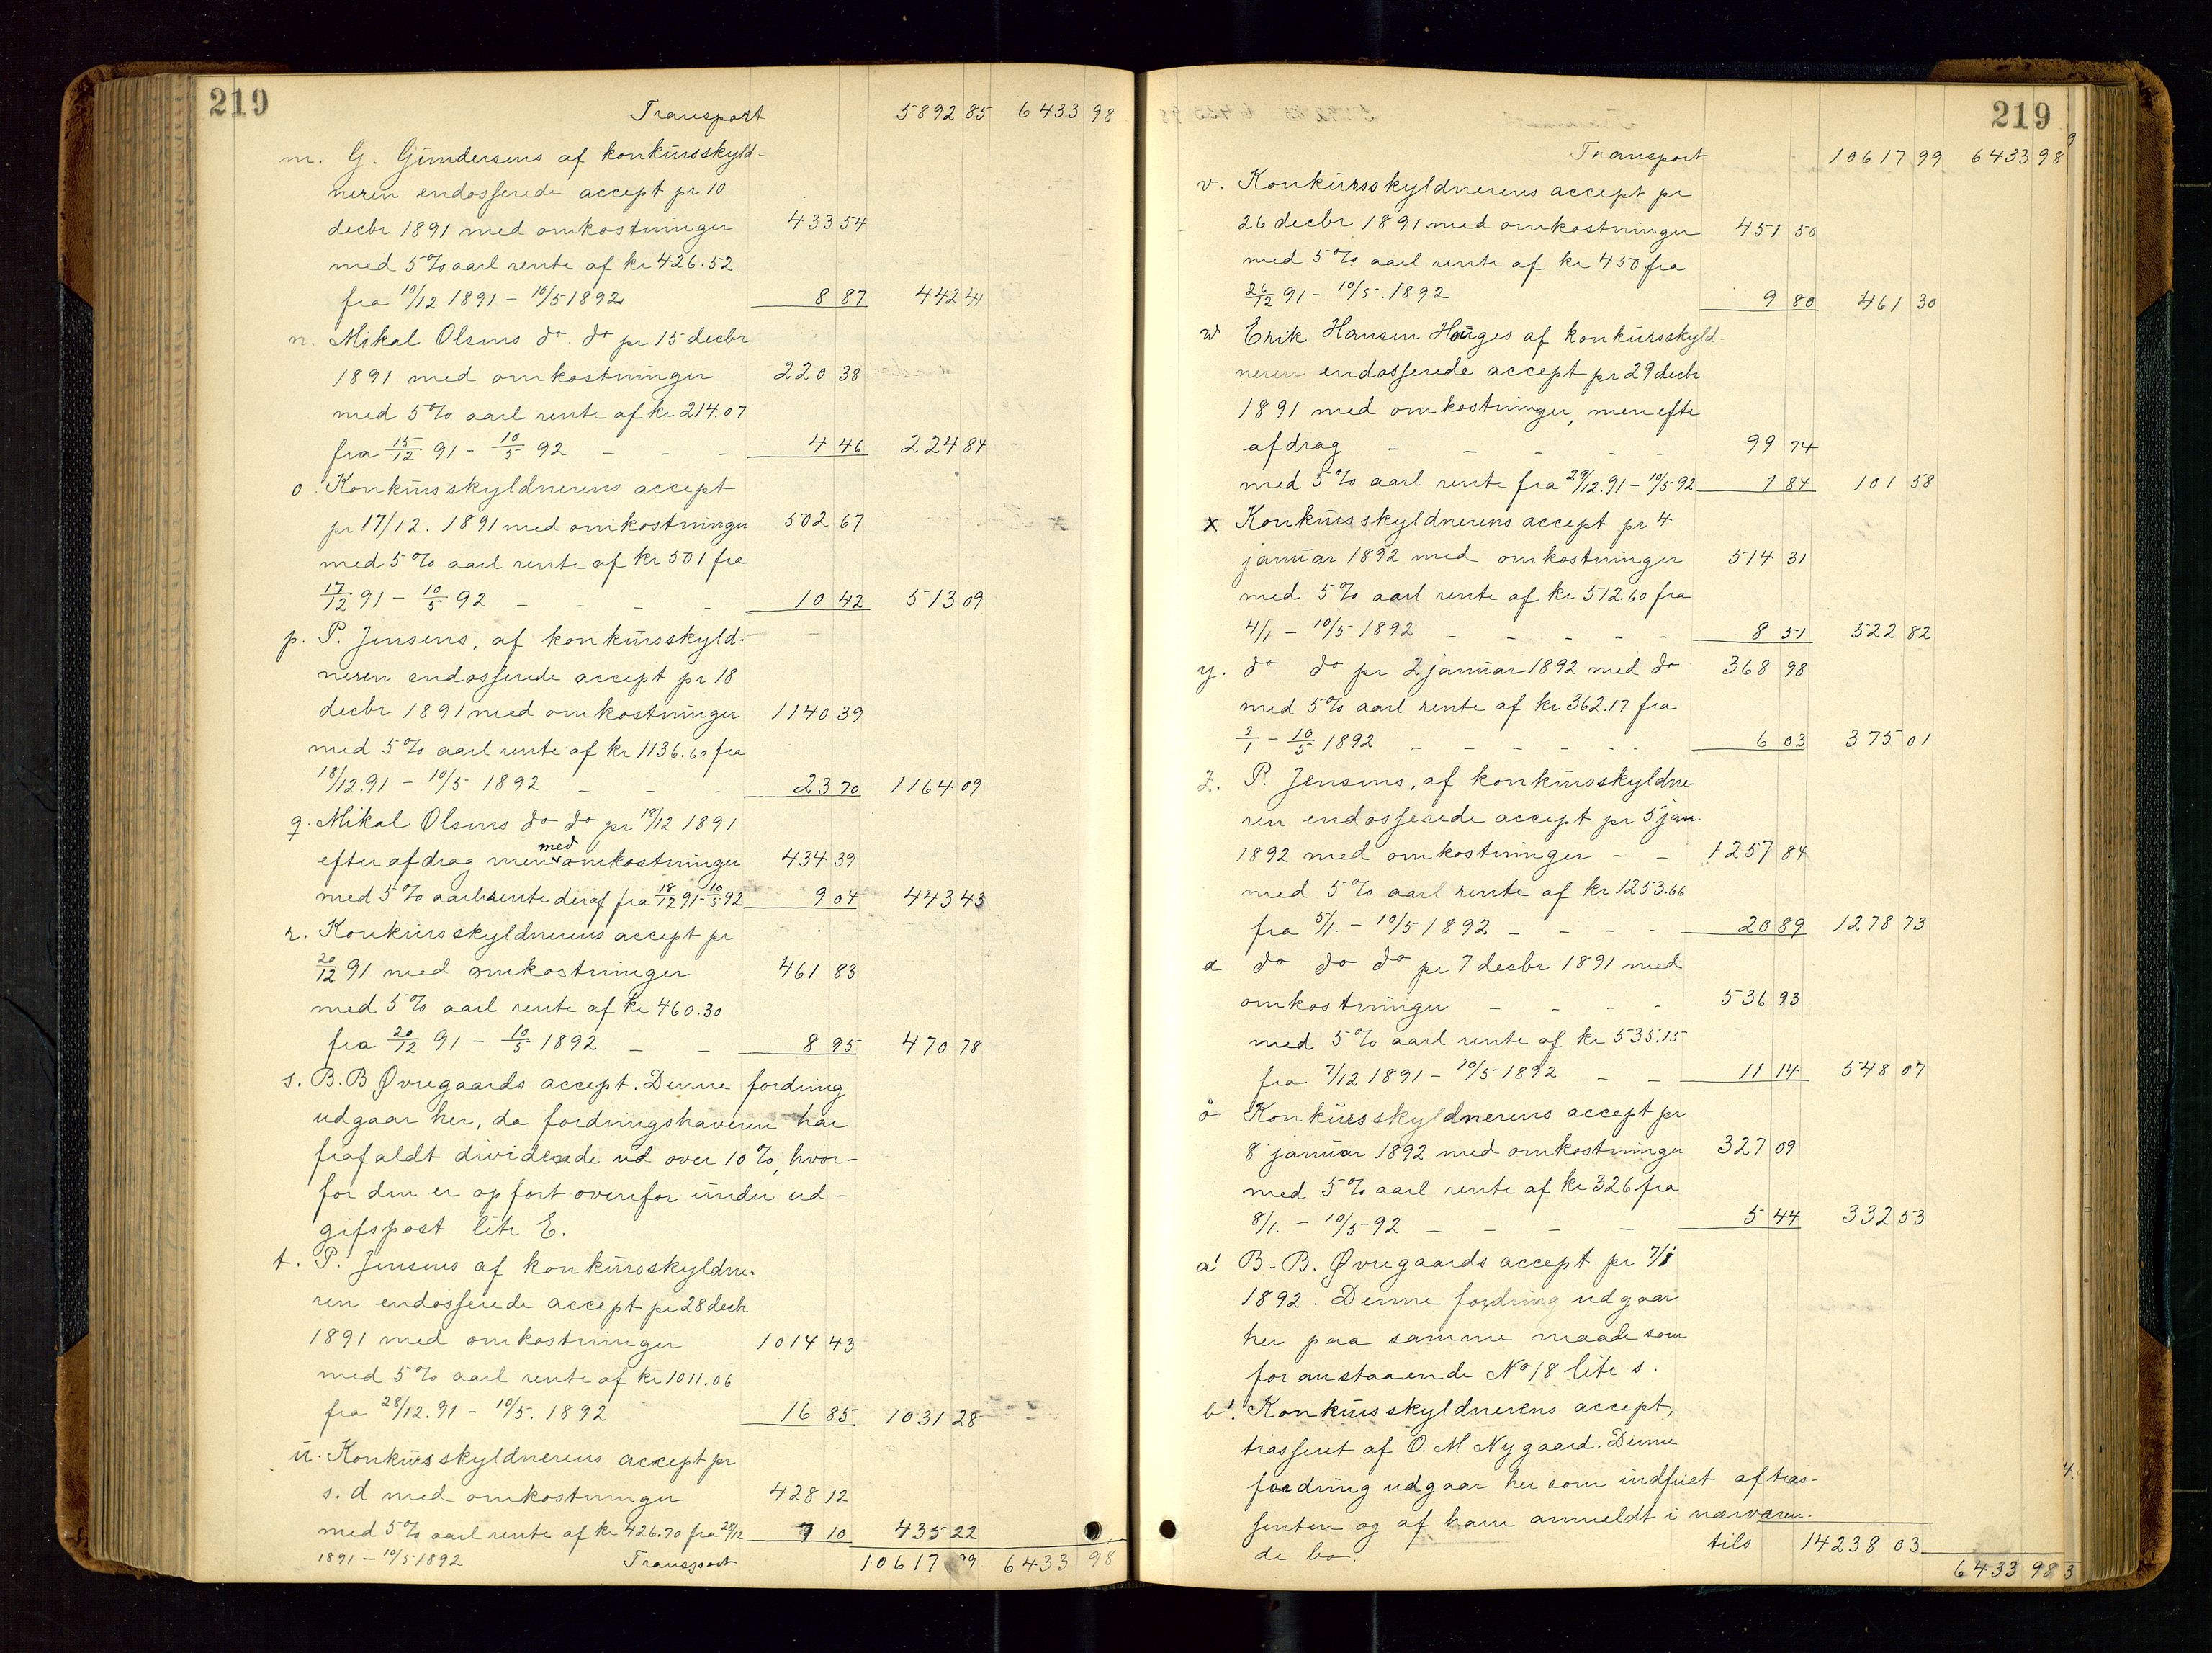 219
Transport 5892 85 6433 98
m. G. Gundersens af konkursskyld-
neren endosserede accept pr 10
decbr 1891 med omkostninger 433 54
med 5% aarl rente af kr 426.52
fra 10/12 1891 - 10/5 1892 8 87 442 41
n. Mikal Olsens do. do pr 15 decbr
1891 med omkostninger 220 38
med 5% aarl rente af kr 214.07
fra 15/12 91 - 10/5 92 - - - 4 46 224 84
o. Konkursskyldnerens accept
pr 17/12. 1891 med omkostninger 502 67
med 5% aarl rente af kr 501 fra
17/12 91 - 10/5 92 - - - - 10 42 513 09
p. P. Jensens, af konkursskyld-
neren endosserede accept pr 18
decbr 1891 med omkostninger 1140 39
med 5% aarl rente af kr 1136.60 fra
18/12.91 - 10/5 1892 - - - 23 70 1164 09
q. Mikal Olsens do do pr 18/12 1891
efter afdrag men med omkostninger 434 39
med 5% aarl rente deraf fra 18/12 91-10/5 92 9 04 443 43
r. Konkursskyldnerens accept pr
20/12 91 med omkostninger 461 83
med 5% aarl rente af kr 460.30
fra 20/12 91 - 10/5 1892 - - 8 95 470 78
s. B. B Øvregaards accept. Denne fordring
udgaar her, da fordringshaveren har
frafaldt dividende ud over 10%, hvor-
for den er opført ovenfor under ud-
gifspost litr E.
t. P. Jensens af konkursskyldne-
ren endosserede accept pr 28 decbr
1891 med omkostninger 1014 43
med 5% aarl rente af kr 1011.06
fra 28/12.91 - 10/5. 1892 16 85 1031 28
u. Konkursskyldnerens accept pr
s. d med omkostninger 428 12
med 5% aarl rente af kr 426.70 fra 28/12 7 10 435 22
1891 - 10/5 1892 Transport 10617 99 6433 98
219
Transport 10617 99 6433 98
v. Konkursskyldnerens accept pr
26 decbr 1891 med omkostninger 451 50
med 5% aarl rente af kr 450 fra
26/12 91 - 10/5. 1892 9 80 461 30
w Erik Hansen Hauges af konkursskyld-
neren endosserede accept pr 29 decbr
1891 med omkostninger, men efter
afdrag - - - - - 99 74
med 5% aarl rente fra 29/12.91 - 10/5 92 1 84 101 58
x Konkursskyldnerens accept pr 4
januar 1892 med omkostninger 514 31
med 5% aarl rente af kr 512.60 fra
4/1 - 10/5 1892 - - - - - 8 51 522 82
y. do do pr 2 januar 1892 med do 368 98
med 5% aarl rente af kr 362.17 fra
2/1 - 10/5 1892 - - - - - 6 03 375 01
z. P. Jensens, af konkursskyldne-
ren endosserede accept pr 5 jan.
1892 med omkostninger - - 1257 84
med 5% aarl rente af kr 1253.66
fra 5/1. - 10/5 1892 - - - - 20 89 1278 73
æ do do do pr 7 decbr 1891 med
omkostninger - - - - 536 93
med 5% aarl rente af kr 535.15
fra 7/12 1891 - 10/5 1892 - - 11 14 548 07
ø Konkursskyldnerens accept pr
8 januar 1892 med omkostninger 327 09
med 5% aarl rente af kr 326 fra
8/1. - 10/5 92 - - - - 5 44 332 53
a' B. B. Øvregaards accept pr 7/1
1892. Denne fordring udgaar
her paa samme maade som
foranstaaende No 18 litr s.
b'. Konkursskyldnerens accept,
trasseret af O. M Nygaard. Denne
fordring udgaar her som indfriet af tras-
senten og af ham anmeldt i nærværen-
de bo. tils 14238 03
6433 98